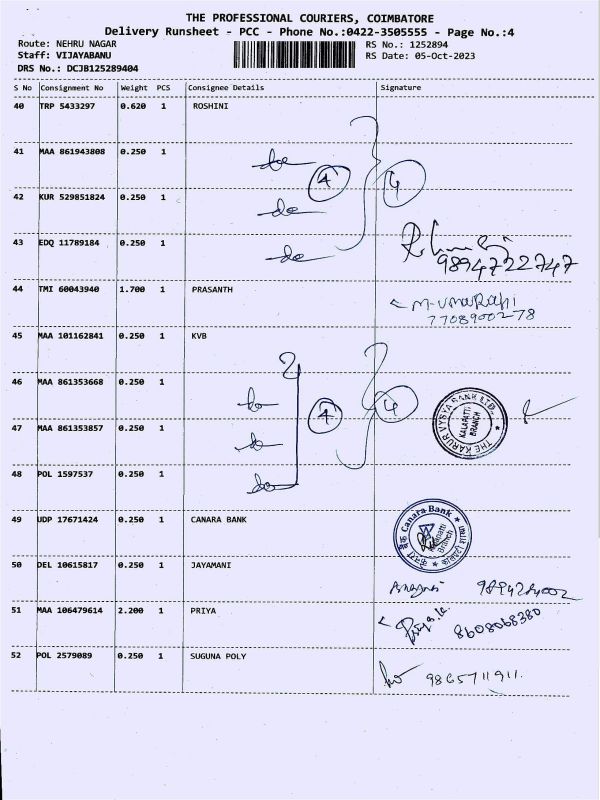 THE PROFESSIONAL COURIERS, COIMBATORE
Delivery Runsheet - PCC - Phone No.:0422-3505555 - Page No.:4
Route: NEHRU NAGAR RS No.: 1252894
Staff: VIJAYABANU RS Date: 05-Oct-2023
DRS No.: DCJB125289404
S No Consignment No Weight PCS Consignee Details Signature
40 TRP 5433297 0.620 1 ROSHINI
41 MAA 861943808 0.250 1 do
4 4
42 KUR 529851824 0.250 1 do
43 EDQ 11789184 0.250 1 do
9894722747
44 TMI 60043940 1.700 1 PRASANTH M-UMARANI
7708900278
45 MAA 101162841 0.250 1 KVB
46 MAA 861353668 0.250 1 do
4 4
THE KARUR VYSYA BANK LTD.,
KALAPATTI
BRANCH
47 MAA 861353857 0.250 1 do
48 POL 1597537 0.250 1 do
49 UDP 17671424 0.250 1 CANARA BANK
Canara Bank
Branch
50 DEL 10615817 0.250 1 JAYAMANI
51 MAA 106479614 2.200 1 PRIYA Priya
8608068380
52 POL 2579089 0.250 1 SUGUNA POLY
9865711911.